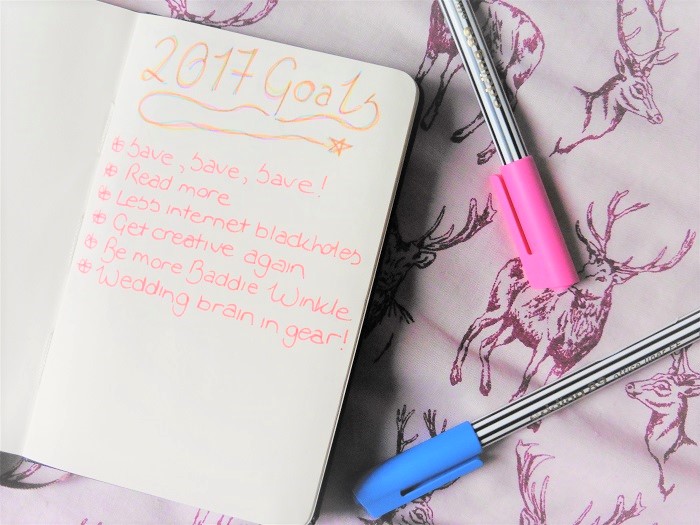 2017 Goals
* Save, Save, Save!
* Read more
* Less internet blackholes
* Get creative again
* Be more Baddie Winkle
* Wedding brain in gear!